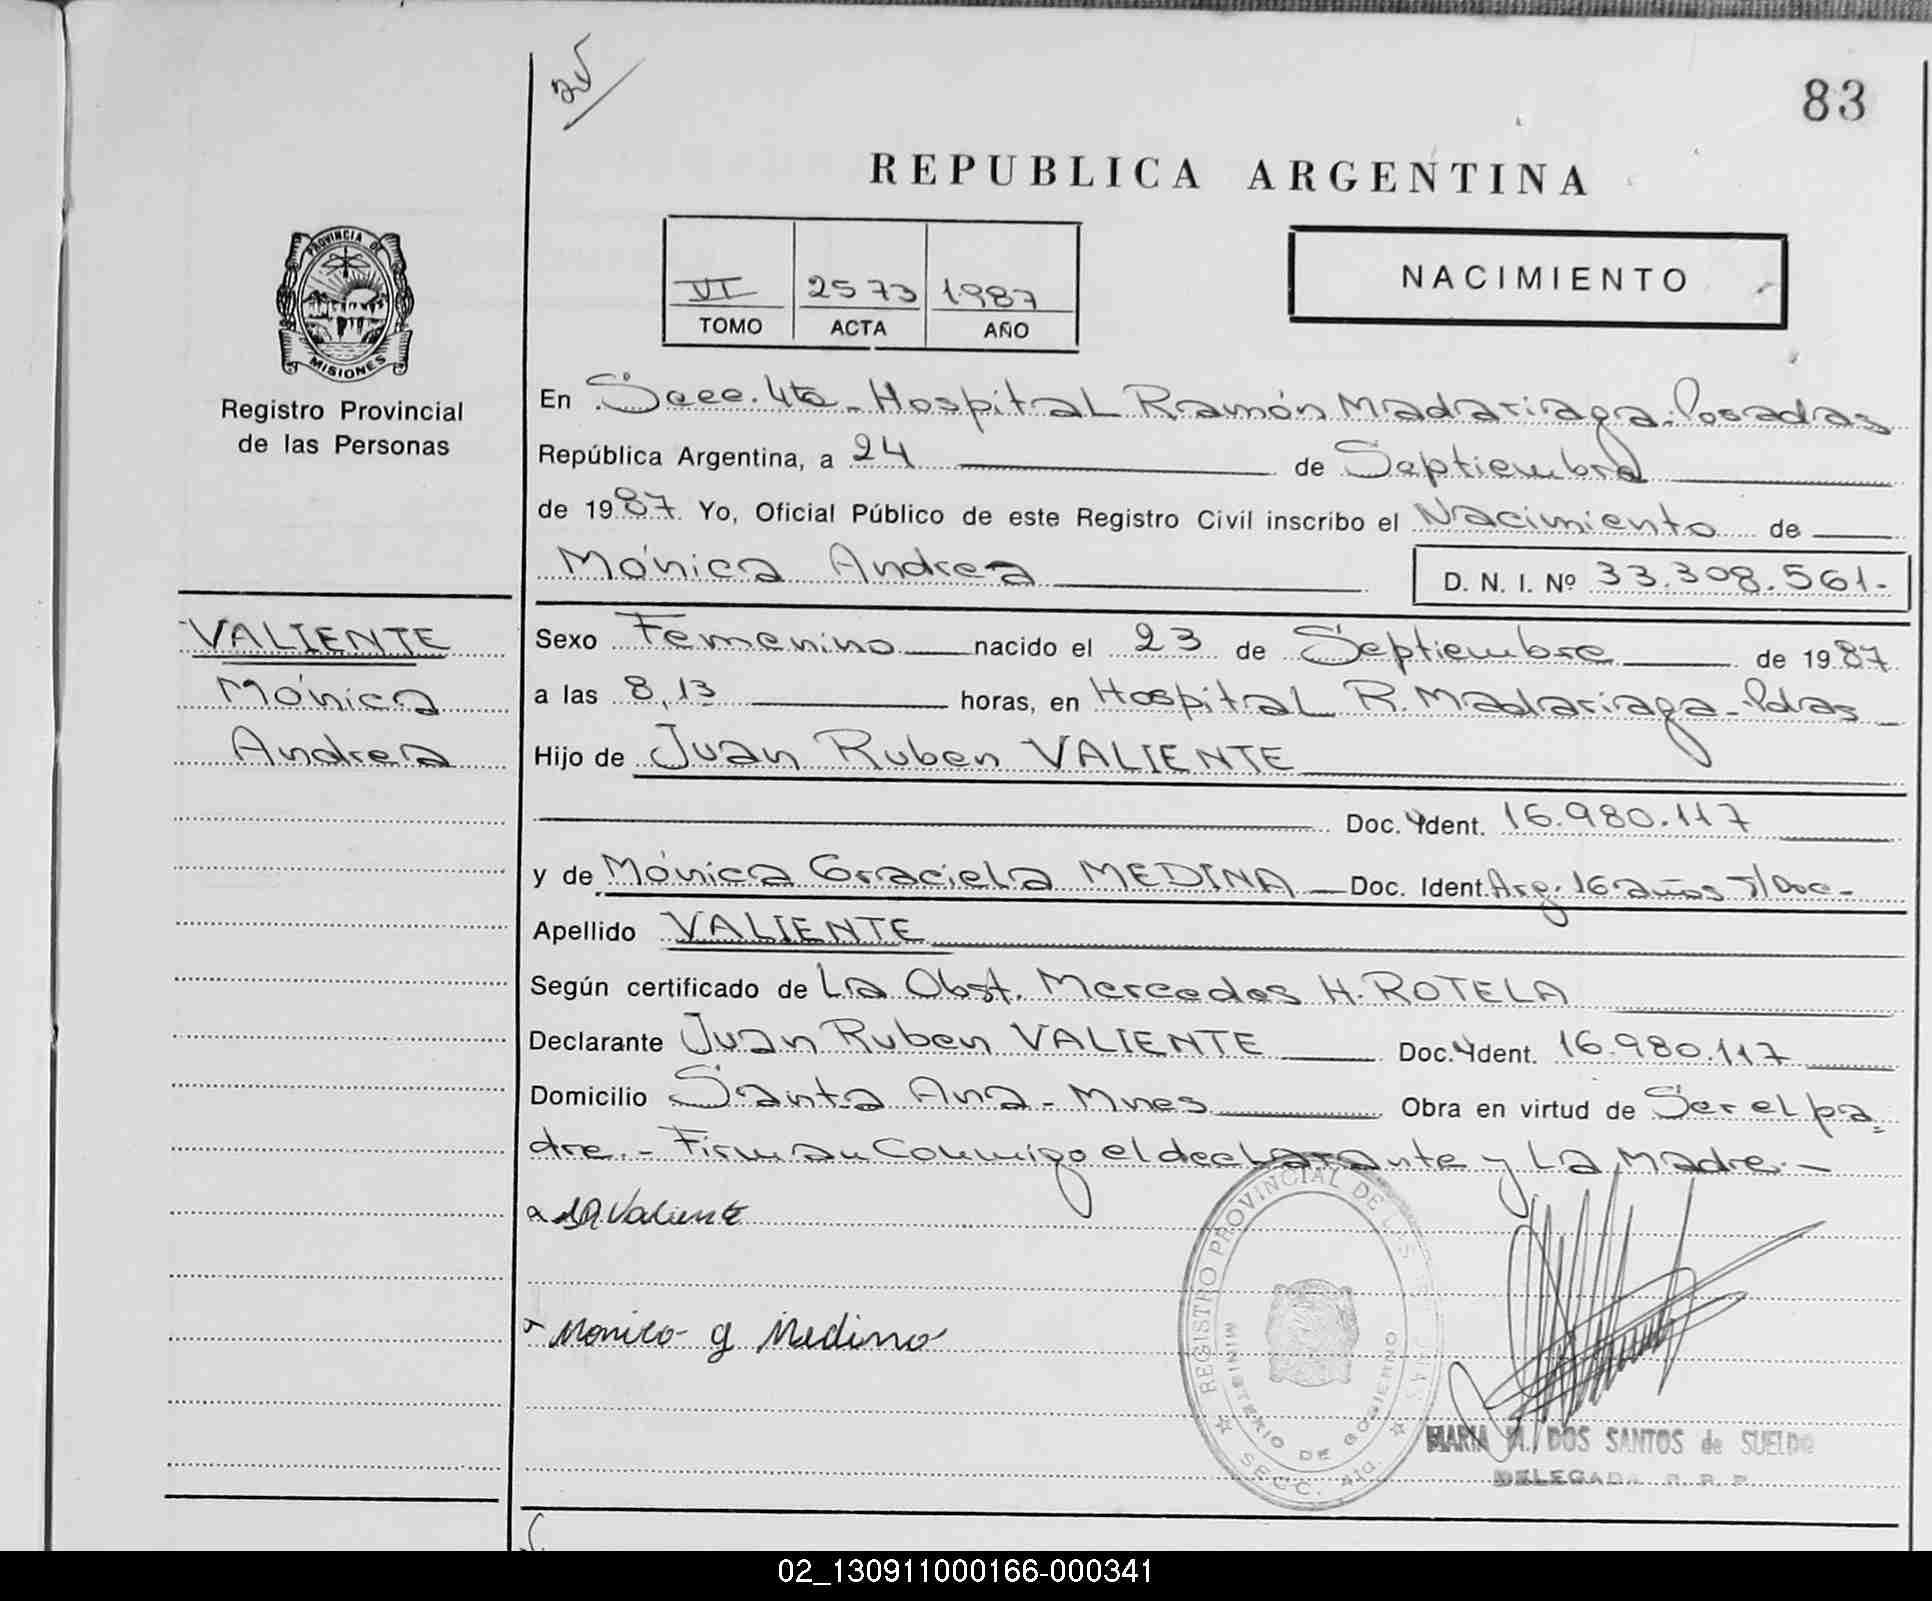 25
83
REPUBLICA ARGENTINA
PROVINCIA DE
MISIONES
Registro Provincial
de las Personas
VI 2573 1987
TOMO ACTA AÑO
NACIMIENTO
En Secc. 4ta - Hospital Ramón Madariaga - Posadas
República Argentina, a 24 de Septiembre
de 1987. Yo, Oficial Público de este Registro Civil inscribo el Nacimiento de
Mónica Andrea
D. N. I. Nº 33.308.561.-
VALIENTE
Mónica
Andrea
Sexo Femenino nacido el 23 de Septiembre de 1987
a las 8,13 horas, en Hospital R. Madariaga - Pdas
Hijo de Juan Ruben VALIENTE
Doc. Ydent. 16.980.117
y de Mónica Graciela MEDINA - Doc. Ident. Arg. 16 años S/Doc -
Apellido VALIENTE
Según certificado de La Obst. Mercedes H. ROTELA
Declarante Juan Ruben VALIENTE Doc. Ydent. 16.980.117
Domicilio Santa Ana - Mnes Obra en virtud de Ser el pa=
dre. - Firman Conmigo el declarante y La Madre. -
Valiente
Monica g Medina
REGISTRO PROVINCIAL DE LAS PERSONAS
MINISTERIO DE GOBIERNO
SECC. 4ta.
MARIA M. DOS SANTOS de SUELDO
DELEGADA R. R. P.
02_130911000166-000341